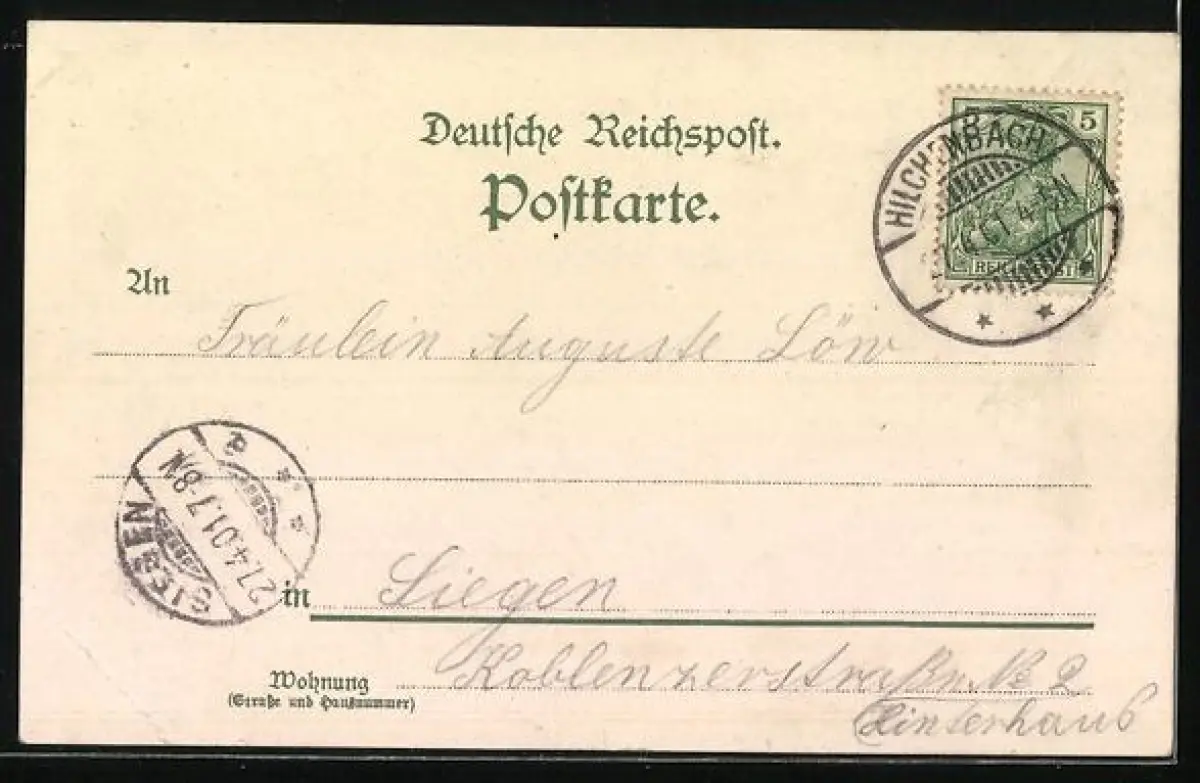 Deutsche Reichspost.
Postkarte.
5
REICHSPOST
HILCHENBACH
4-5N
An
Fräulein Auguste Löw
SIEGEN
27.4.01.7-8N
in Siegen
Wohnung Koblenzerstraße No 2
(Straße und Hausnummer)
Hinterhaus